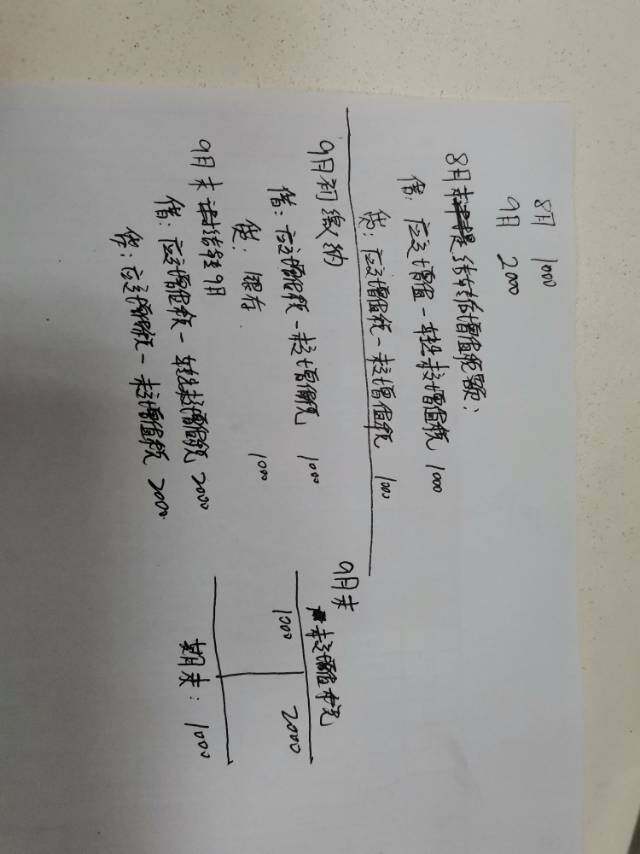 8月 1000
9月 2000
8月末结转增值税额:
借: 应交增值-转出未交增值税 1000
贷: 应交增值税-未交增值税 1000
9月初缴纳
借: 应交增值税-未交增值税 1000
贷: 银行 1000
9月末结转9月
借: 应交增值税-转出未交增值税 2000
贷: 应交增值税-未交增值税 2000
9月末
未交增值税
1000 2000
期末: 1000